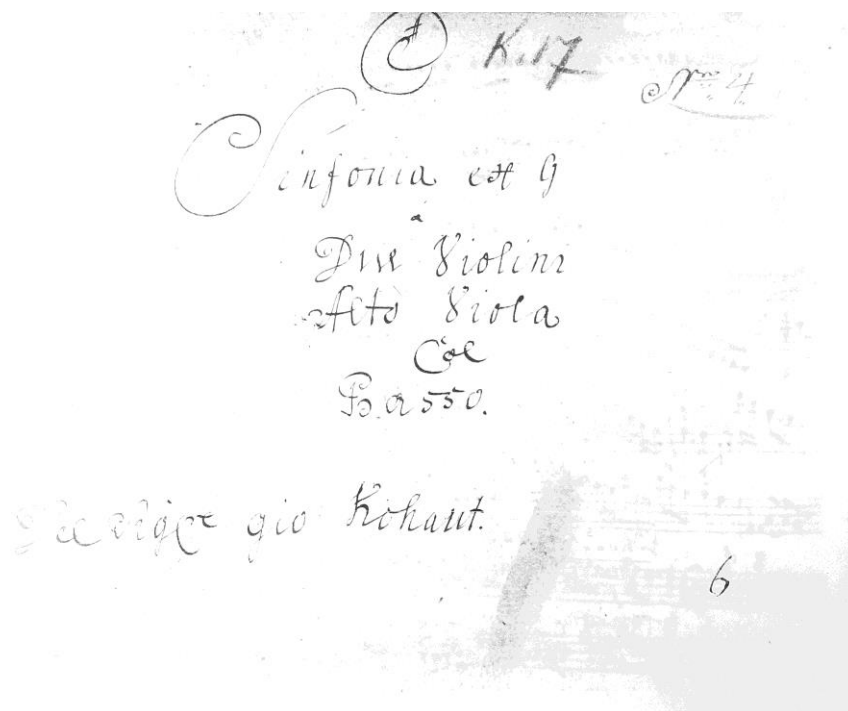 K. 17
Nro 4
Sinfonia ex G
a
Due Violini
Alto Viola
Col
Basso.
Del Sigre gio Kohaut.
6